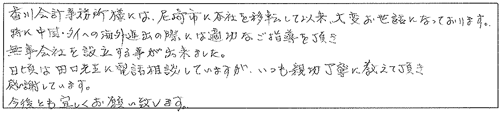 香川会計事務所様には、尼崎市に本社を移転して以来、大変お世話になっております。
特に中国・タイへの海外進出の際には適切なご指導を頂き
無事会社を設立する事が出来ました。
日頃は田口先生に電話相談していますが、いつも親切丁寧に教えて頂き
感謝しています。
今後とも宜しくお願い致します。